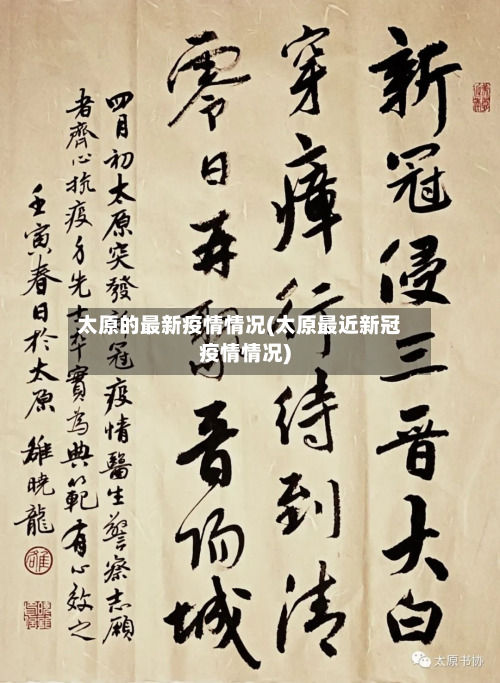 新冠侵三晋大白
穿瘴行待到清
零日再聚晋阳城
四月初太原突發新冠疫情醫生警察志願
者齊心抗疫方先士卒實為典範有心效之
壬寅春日於太原 雒曉龍
太原的最新疫情情况(太原最近新冠
疫情情况)
太原书协